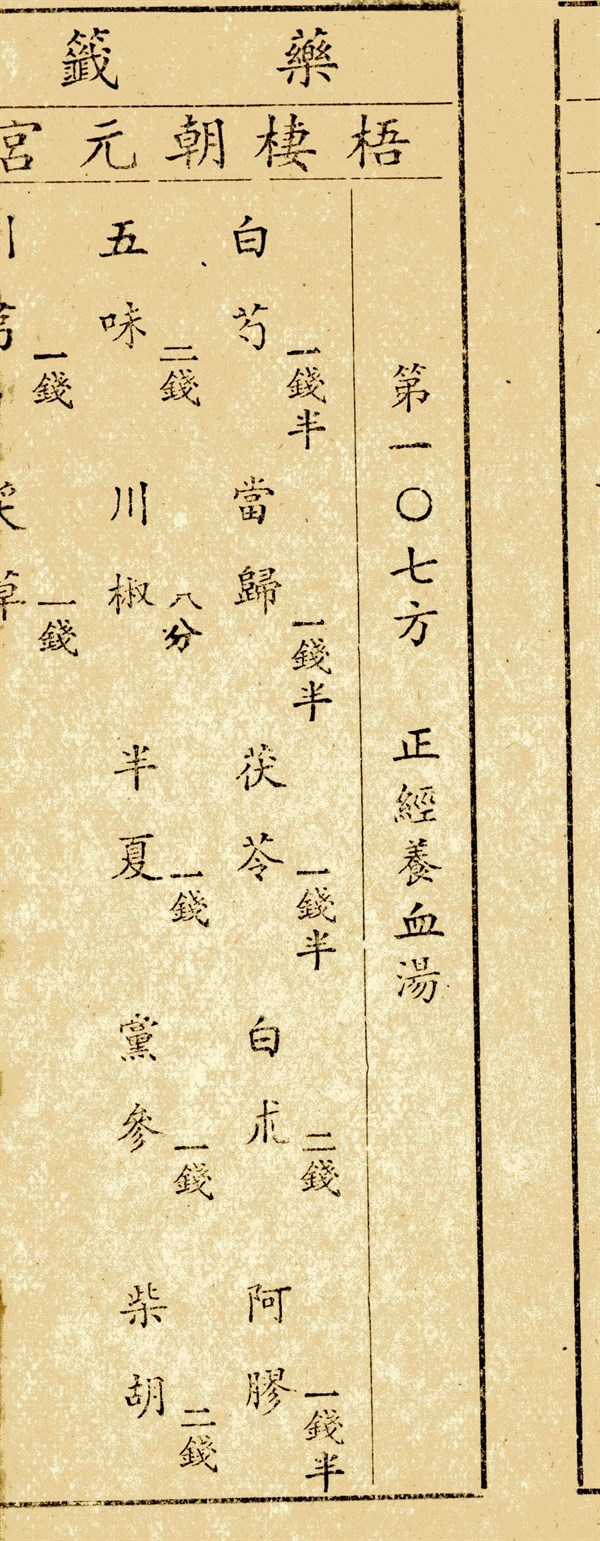 藥籤
梧棲朝元宮
第一〇七方 正經養血湯
白芍 一錢半 當歸 一錢半 茯苓 一錢半 白朮 二錢 阿膠 一錢半
五味 二錢 川椒 八分 半夏 一錢 黨參 一錢 柴胡 二錢
川芎 一錢 炙草 一錢